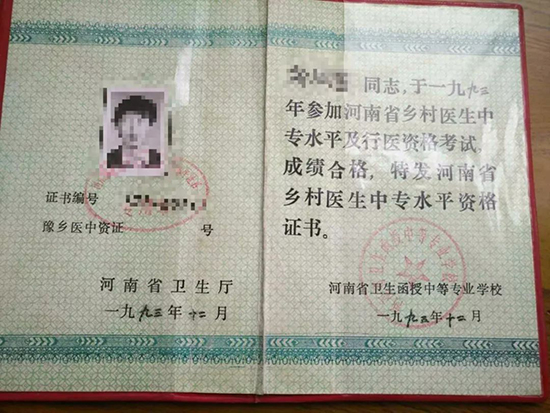 证书编号
豫乡医中资证 号
河南省卫生厅
一九九三年十二月
同志,于一九九三
年参加河南省乡村医生中
专水平及行医资格考试,
成绩合格,特发河南省
乡村医生中专水平资格
证书。
河南省卫生函授中等专业学校
一九九三年十二月